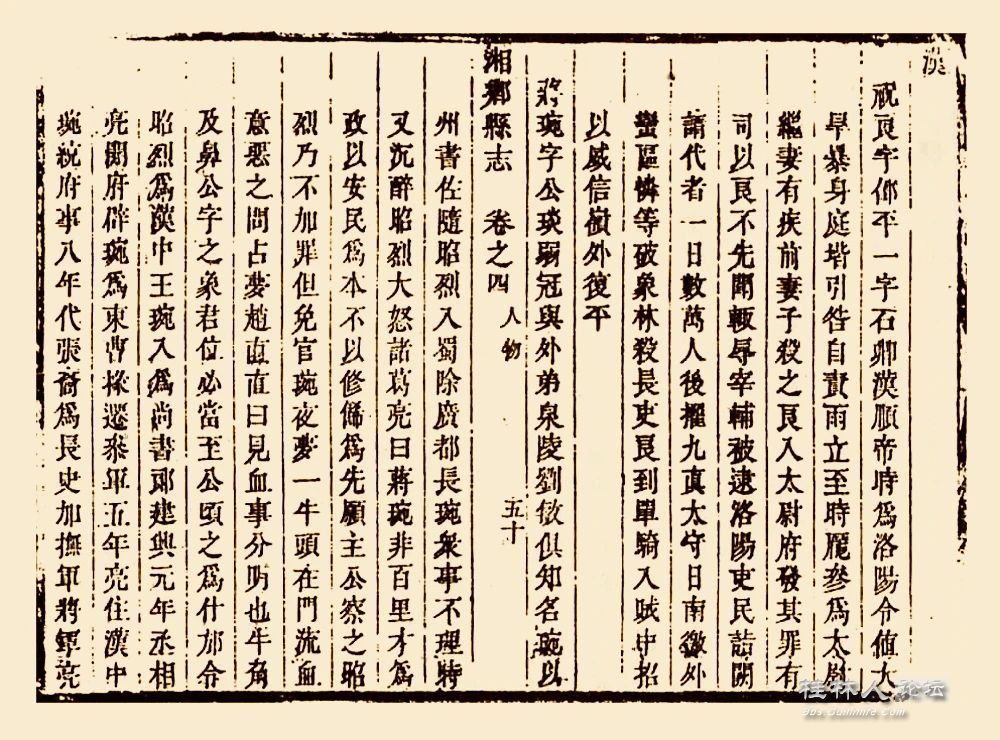 漢
祝良字邵平一字石卿漢順帝時爲洛陽令值大
旱暴身庭堦引咎自責雨立至時龎參爲太尉
繼妻有疾前妻子殺之良入太尉府發其罪有
司以良不先聞輒辱宰輔被逮洛陽吏民詣闕
請代者一日數萬人後擢九真太守日南徼外
蠻區憐等破象林殺長吏良到單騎入賊中招
以威信嶺外復平
蔣琬字公琰弱冠與外弟泉陵劉敏俱知名琬以
湘鄉縣志 卷之四 人物 五十
州書佐隨昭烈入蜀除廣都長琬衆事不理時
又沉醉昭烈大怒諸葛亮曰蔣琬非百里才爲
政以安民爲本不以修飾爲先願主公察之昭
烈乃不加罪但免官琬夜夢一牛頭在門流血
意惡之問占夢趙直直曰見血事分明也牛角
及鼻公字之象君位必當至公頃之爲什邡令
昭烈爲漢中王琬入爲尚書郎建興元年丞相
亮開府辟琬爲東曹掾遷參軍五年亮住漢中
琬統府事八年代張裔爲長史加撫軍將軍亮
桂林人论坛
bbs.guilinlife.com